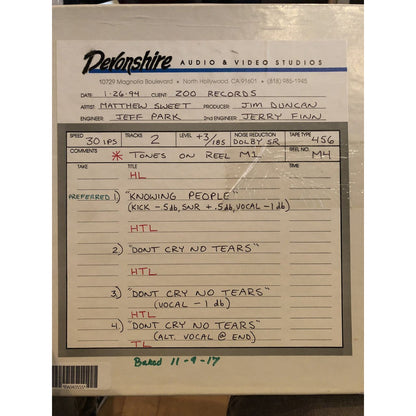 Devonshire AUDIO & VIDEO STUDIOS
10729 Magnolia Boulevard • North Hollywood, CA 91601 • (818) 985-1945
DATE: 1-26-94 CLIENT: ZOO RECORDS
ARTIST: MATTHEW SWEET PRODUCER: JIM DUNCAN
ENGINEER: JEFF PARK 2nd ENGINEER: JERRY FINN
SPEED 30 IPS TRACKS 2 LEVEL +3/185 NOISE REDUCTION DOLBY SR TAPE TYPE 456
COMMENTS * TONES ON REEL M1 REEL NO. M4
TAKE TITLE
HL
PREFERRED 1) "KNOWING PEOPLE"
(KICK -.5db, SNR +.5db, VOCAL -1db)
HTL
2) "DONT CRY NO TEARS"
HTL
3) "DONT CRY NO TEARS"
(VOCAL -1 db)
HTL
4) "DONT CRY NO TEARS"
(ALT. VOCAL @ END)
TL
Baked 11-9-17